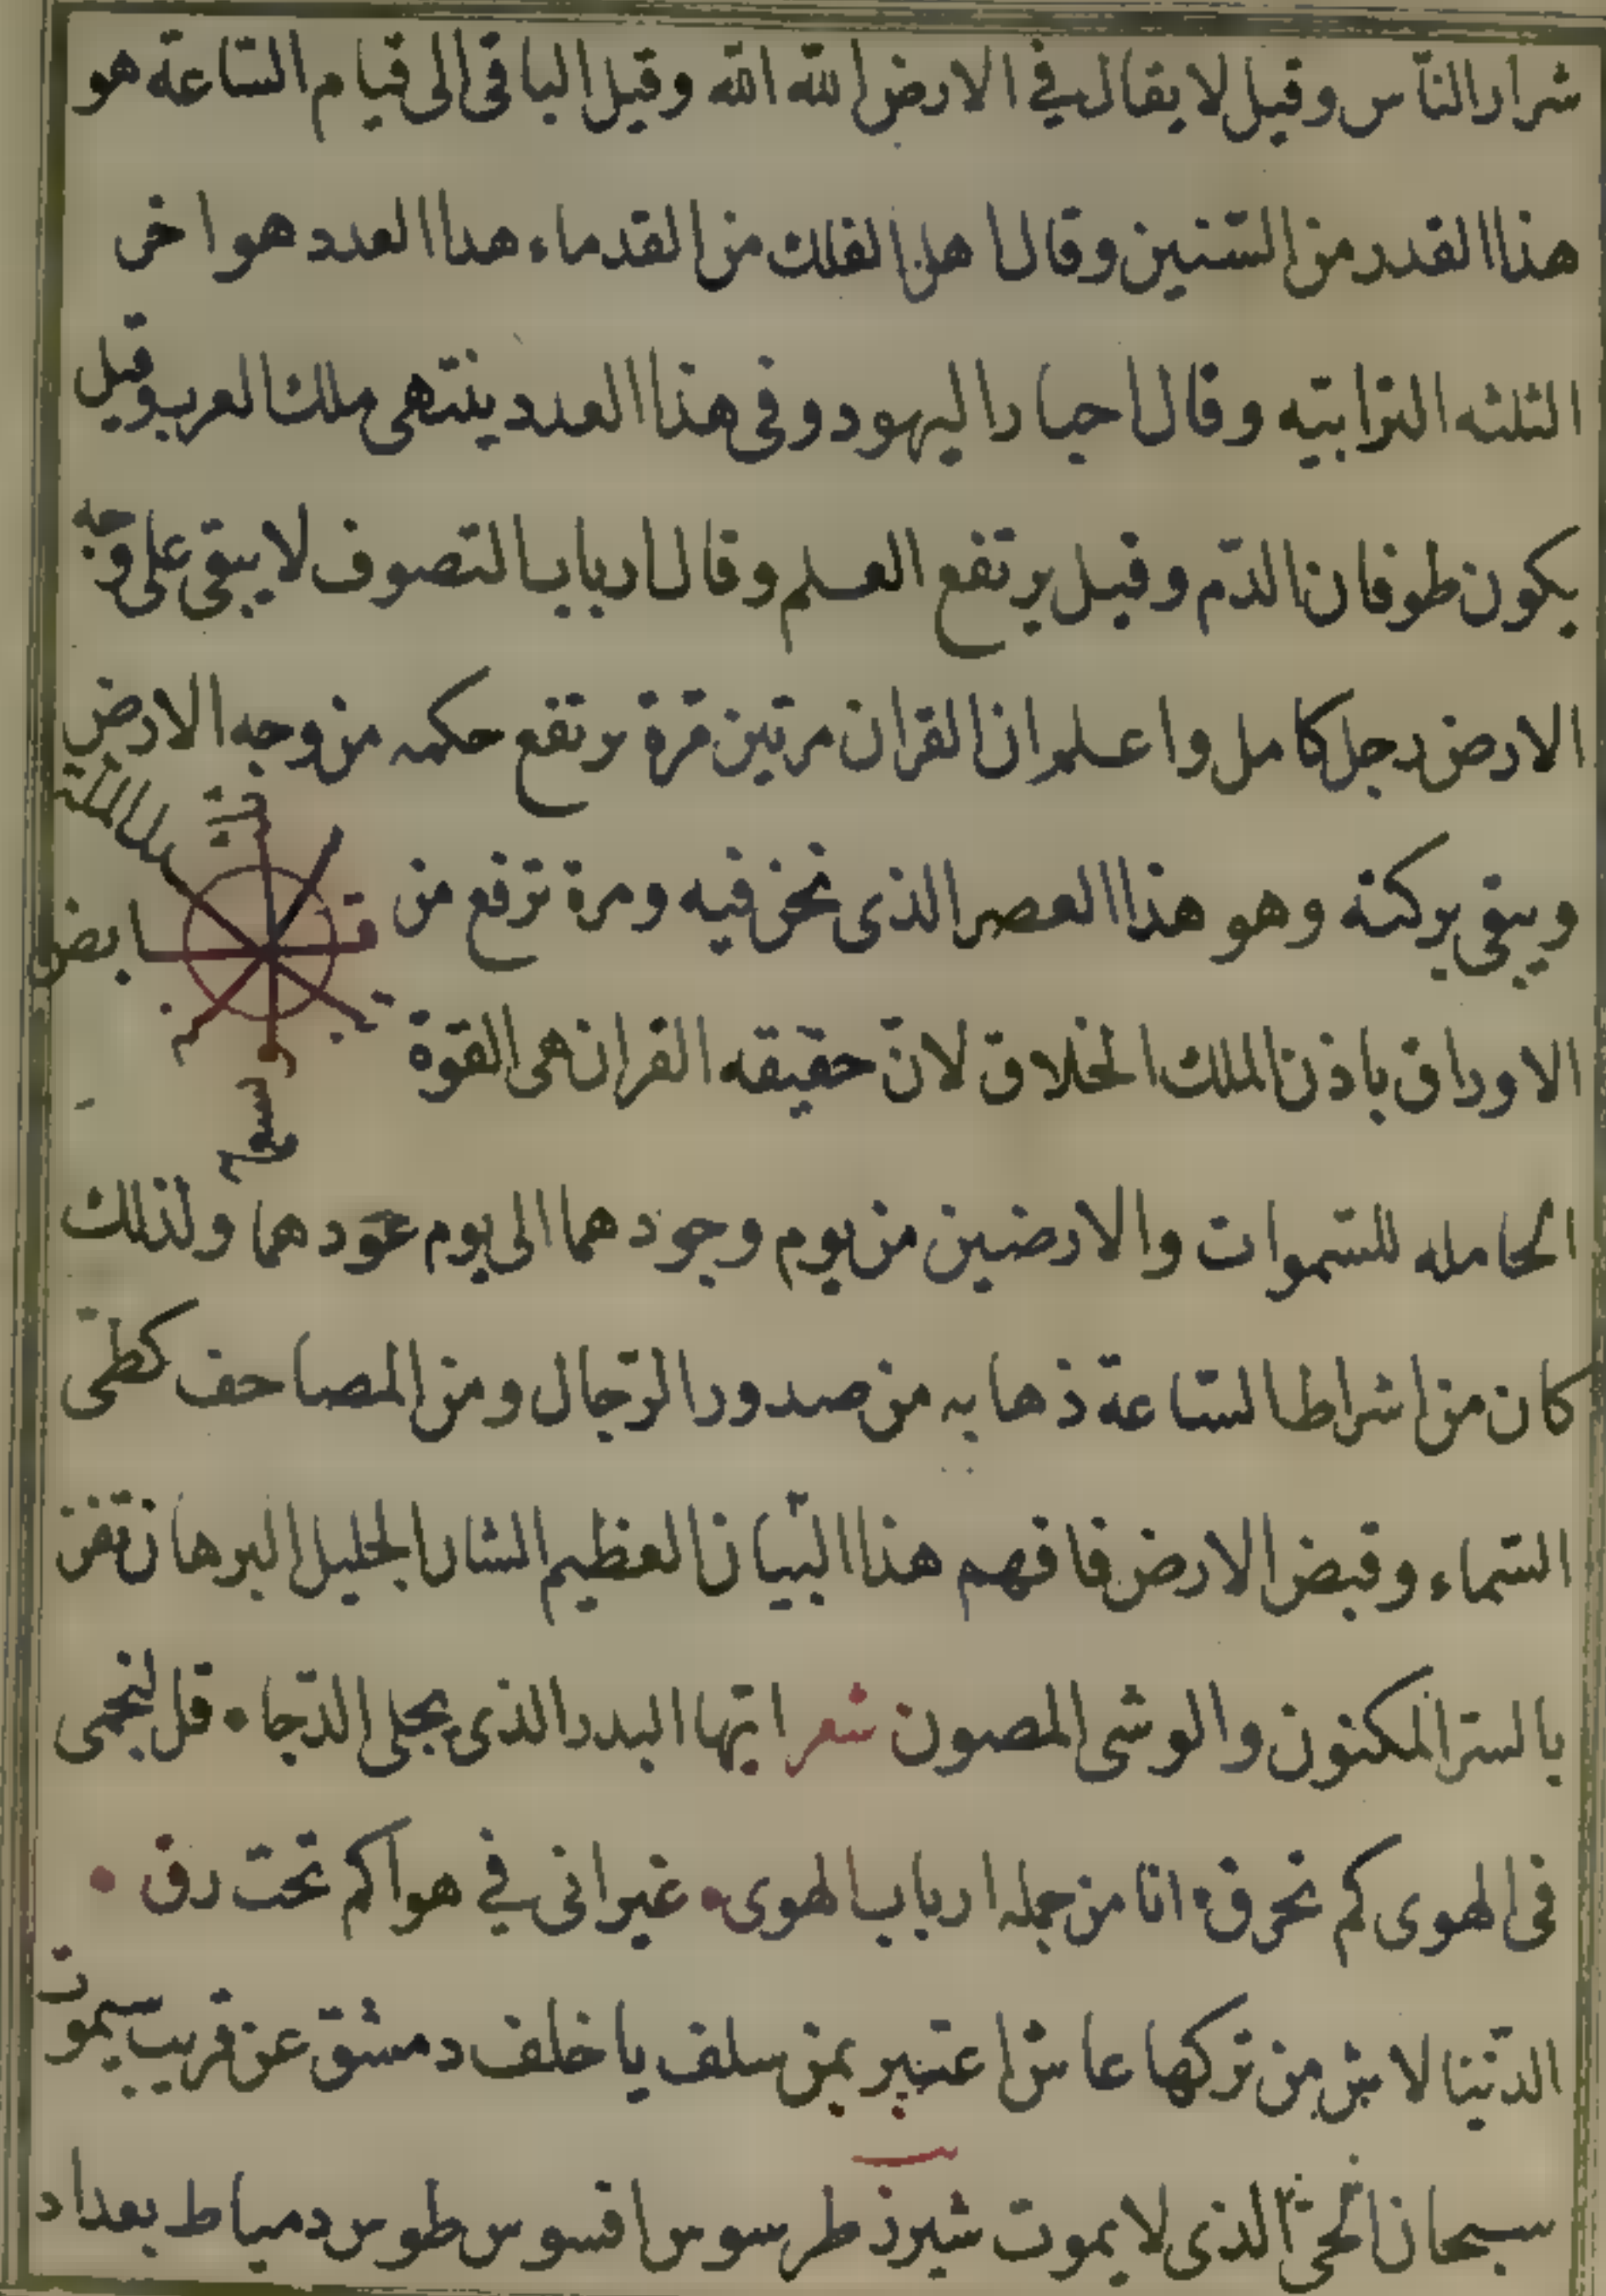 شرار النّاس وقيل لا يقال في الارض الله الله وقيل الباقى الى قيام السّاعة هو
هذا القدر من السّنين وقال اهل الفلك من القدماء هدا العدد هو اخر
الثلثه الترابيّه وقال احبار اليهود وفى هذا العدد ينتهى ملك العرب وقيل
يكون طوفان الدّم وقيل يرتفع العلم وقال ارباب التصوف لا يبقى على وجه
الارض رجل كامل واعلم ان القران مرتين مرّة يرتفع حكمه من وجه الارض
ويبقى بركته وهو هذا العصر الذى نحن فيه ومرة ترفع من
الاوراق باذن الملك الخلاق لانّ حقيقه القران هى القوة
الحامله للسّموات والارضين من يوم وجودهما الى يوم عودهما ولذلك
كان من اشراط السّاعة ذهابه من صدور الرّجال ومن المصاحف كطىّ
السّماء وقبض الارض فافهم هذا البيان العظيم الشان الجليل البرهان تفز
بالسّر المكنون والوشى المصون شعر ايّها البدر الذى يجلى الدّجا قل لنجمى
فى الهوى كم نحرق انا من جمله ارباب الهوى غير انى في هواكم تحت رق
الدّنيا لاش من تركها عاش اعتبر بمن سلف يا خلف دمشق عن قريب سيموت
سبحان الحىّ الذى لا يموت شيرز طرسوس اقسوس طوس دمياط بعداد